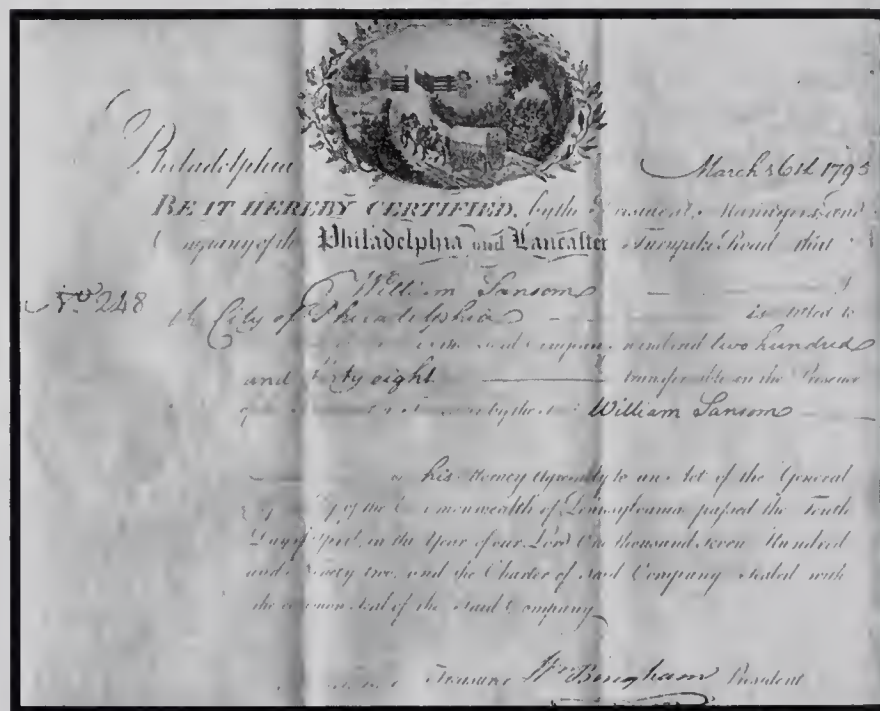 Philadelphia March 16th 1795
BE IT HEREBY CERTIFIED, by the President, Managers, and
Company of the Philadelphia and Lancaster Turnpike Road that
William Sansom of
No. 248 the City of Philadelphia is entitled to
in the said Company numbered two hundred
and forty eight transferable in the Presence
of the by the said William Sansom
or his Attorney Agreeably to an Act of the General
of the Commonwealth of Pennsylvania passed the Tenth
Day of April, in the Year of our Lord One thousand seven Hundred
and Ninety two, and the Charter of said Company Sealed with
the common Seal of the said Company
Treasurer Wm Bingham President